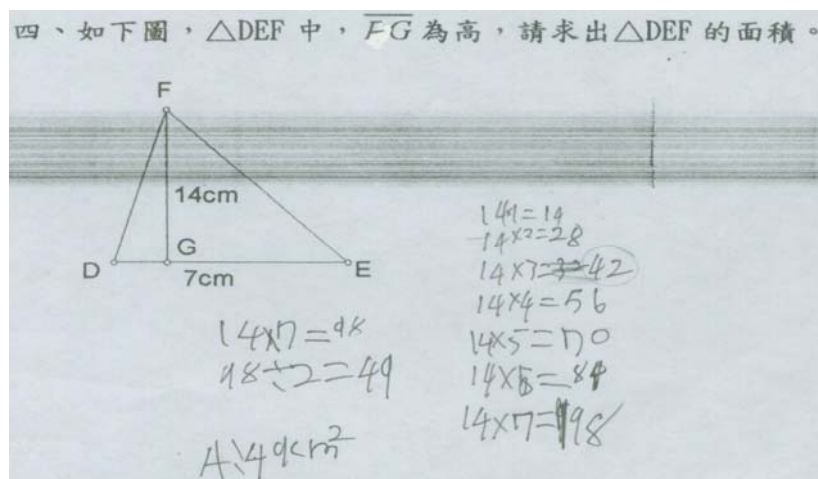 四、如下圖,△DEF 中,FG 為高,請求出△DEF 的面積。
F
14cm
G
D
E
7cm
14×7=98
98÷2=49
A:49cm²
14×1=14
14×2=28
14×3=42
14×4=56
14×5=70
14×6=84
14×7=98